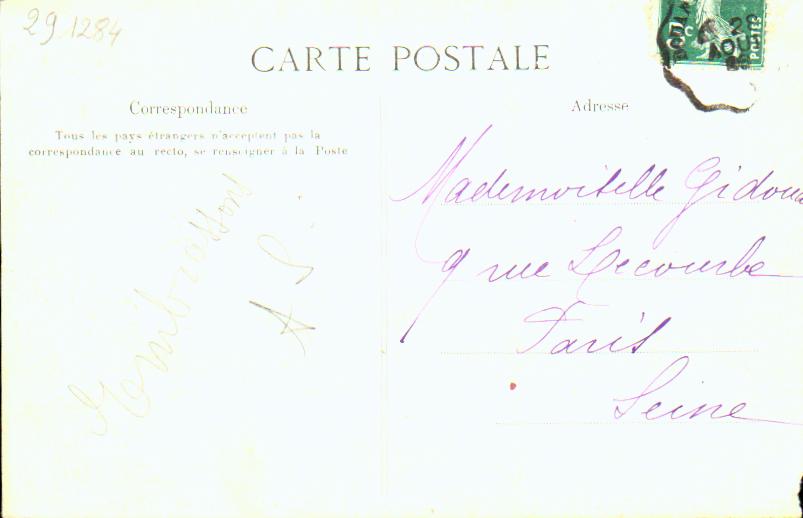 29.1284
CARTE POSTALE
Correspondance
Tous les pays étrangers n'acceptent pas la
correspondance au recto, se renseigner à la Poste
Adresse
Mademoiselle Gidou
9 rue Lecourbe
Paris
Seine
A S
AOU
POSTES